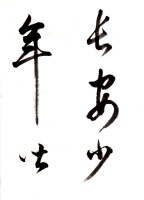 长安少
年